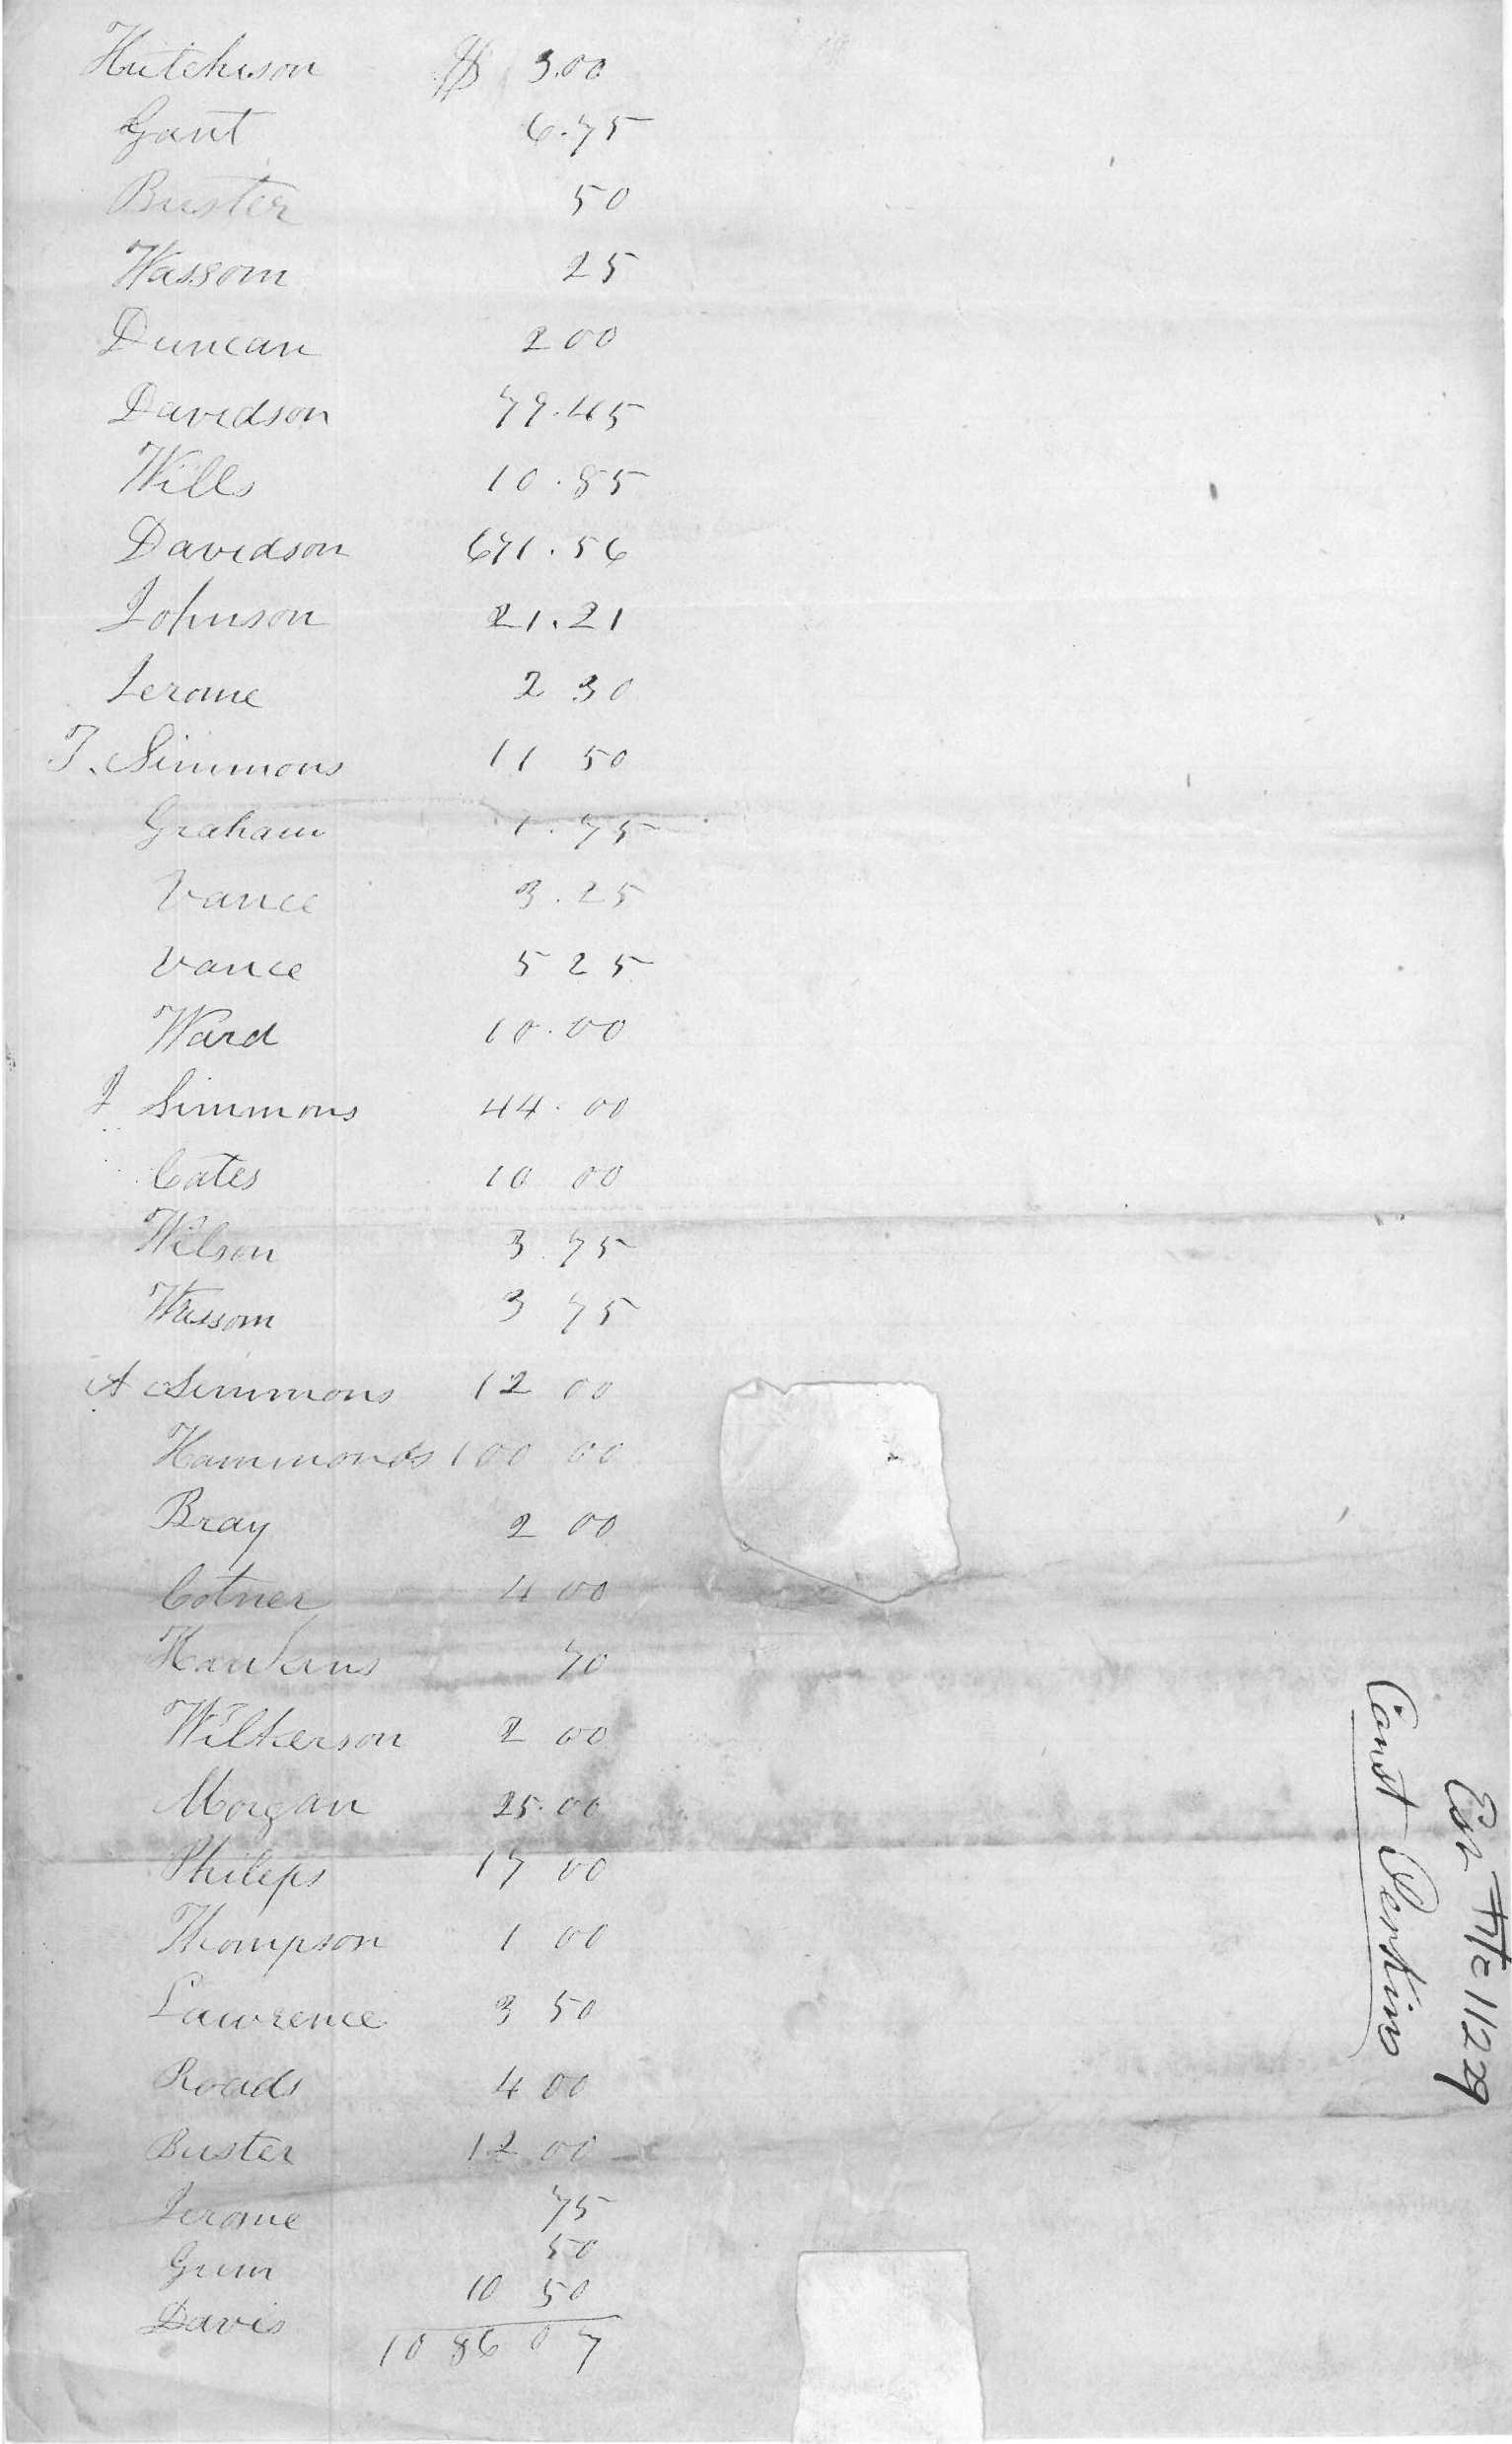 Hutchison $ 3.00
Gant 6.75
Buster 50
Wassom 25
Duncan 2 00
Davidson 79.45
Wills 10.85
Davidson 671.56
Johnson 21.21
Jerome 2 30
T. Simmons 11 50
Graham 1.75
Vance 3.25
Vance 5 25
Ward 10.00
J Simmons 44.00
Cates 10 00
Wilson 3 75
Wassom 3 75
A Simmons 12 00
Hammonds 100 00
Bray 2 00
Cotner 4 00
Hawkins 70
Wilkerson 2 00
Morgan 25.00
Phileps 17 00
Thompson 1 00
Lawrence 3 50
Roads 4 00
Buster 12 00
Jerome 75
Gum 50
Davis 10 50
1086 07
1122
Const Perkins